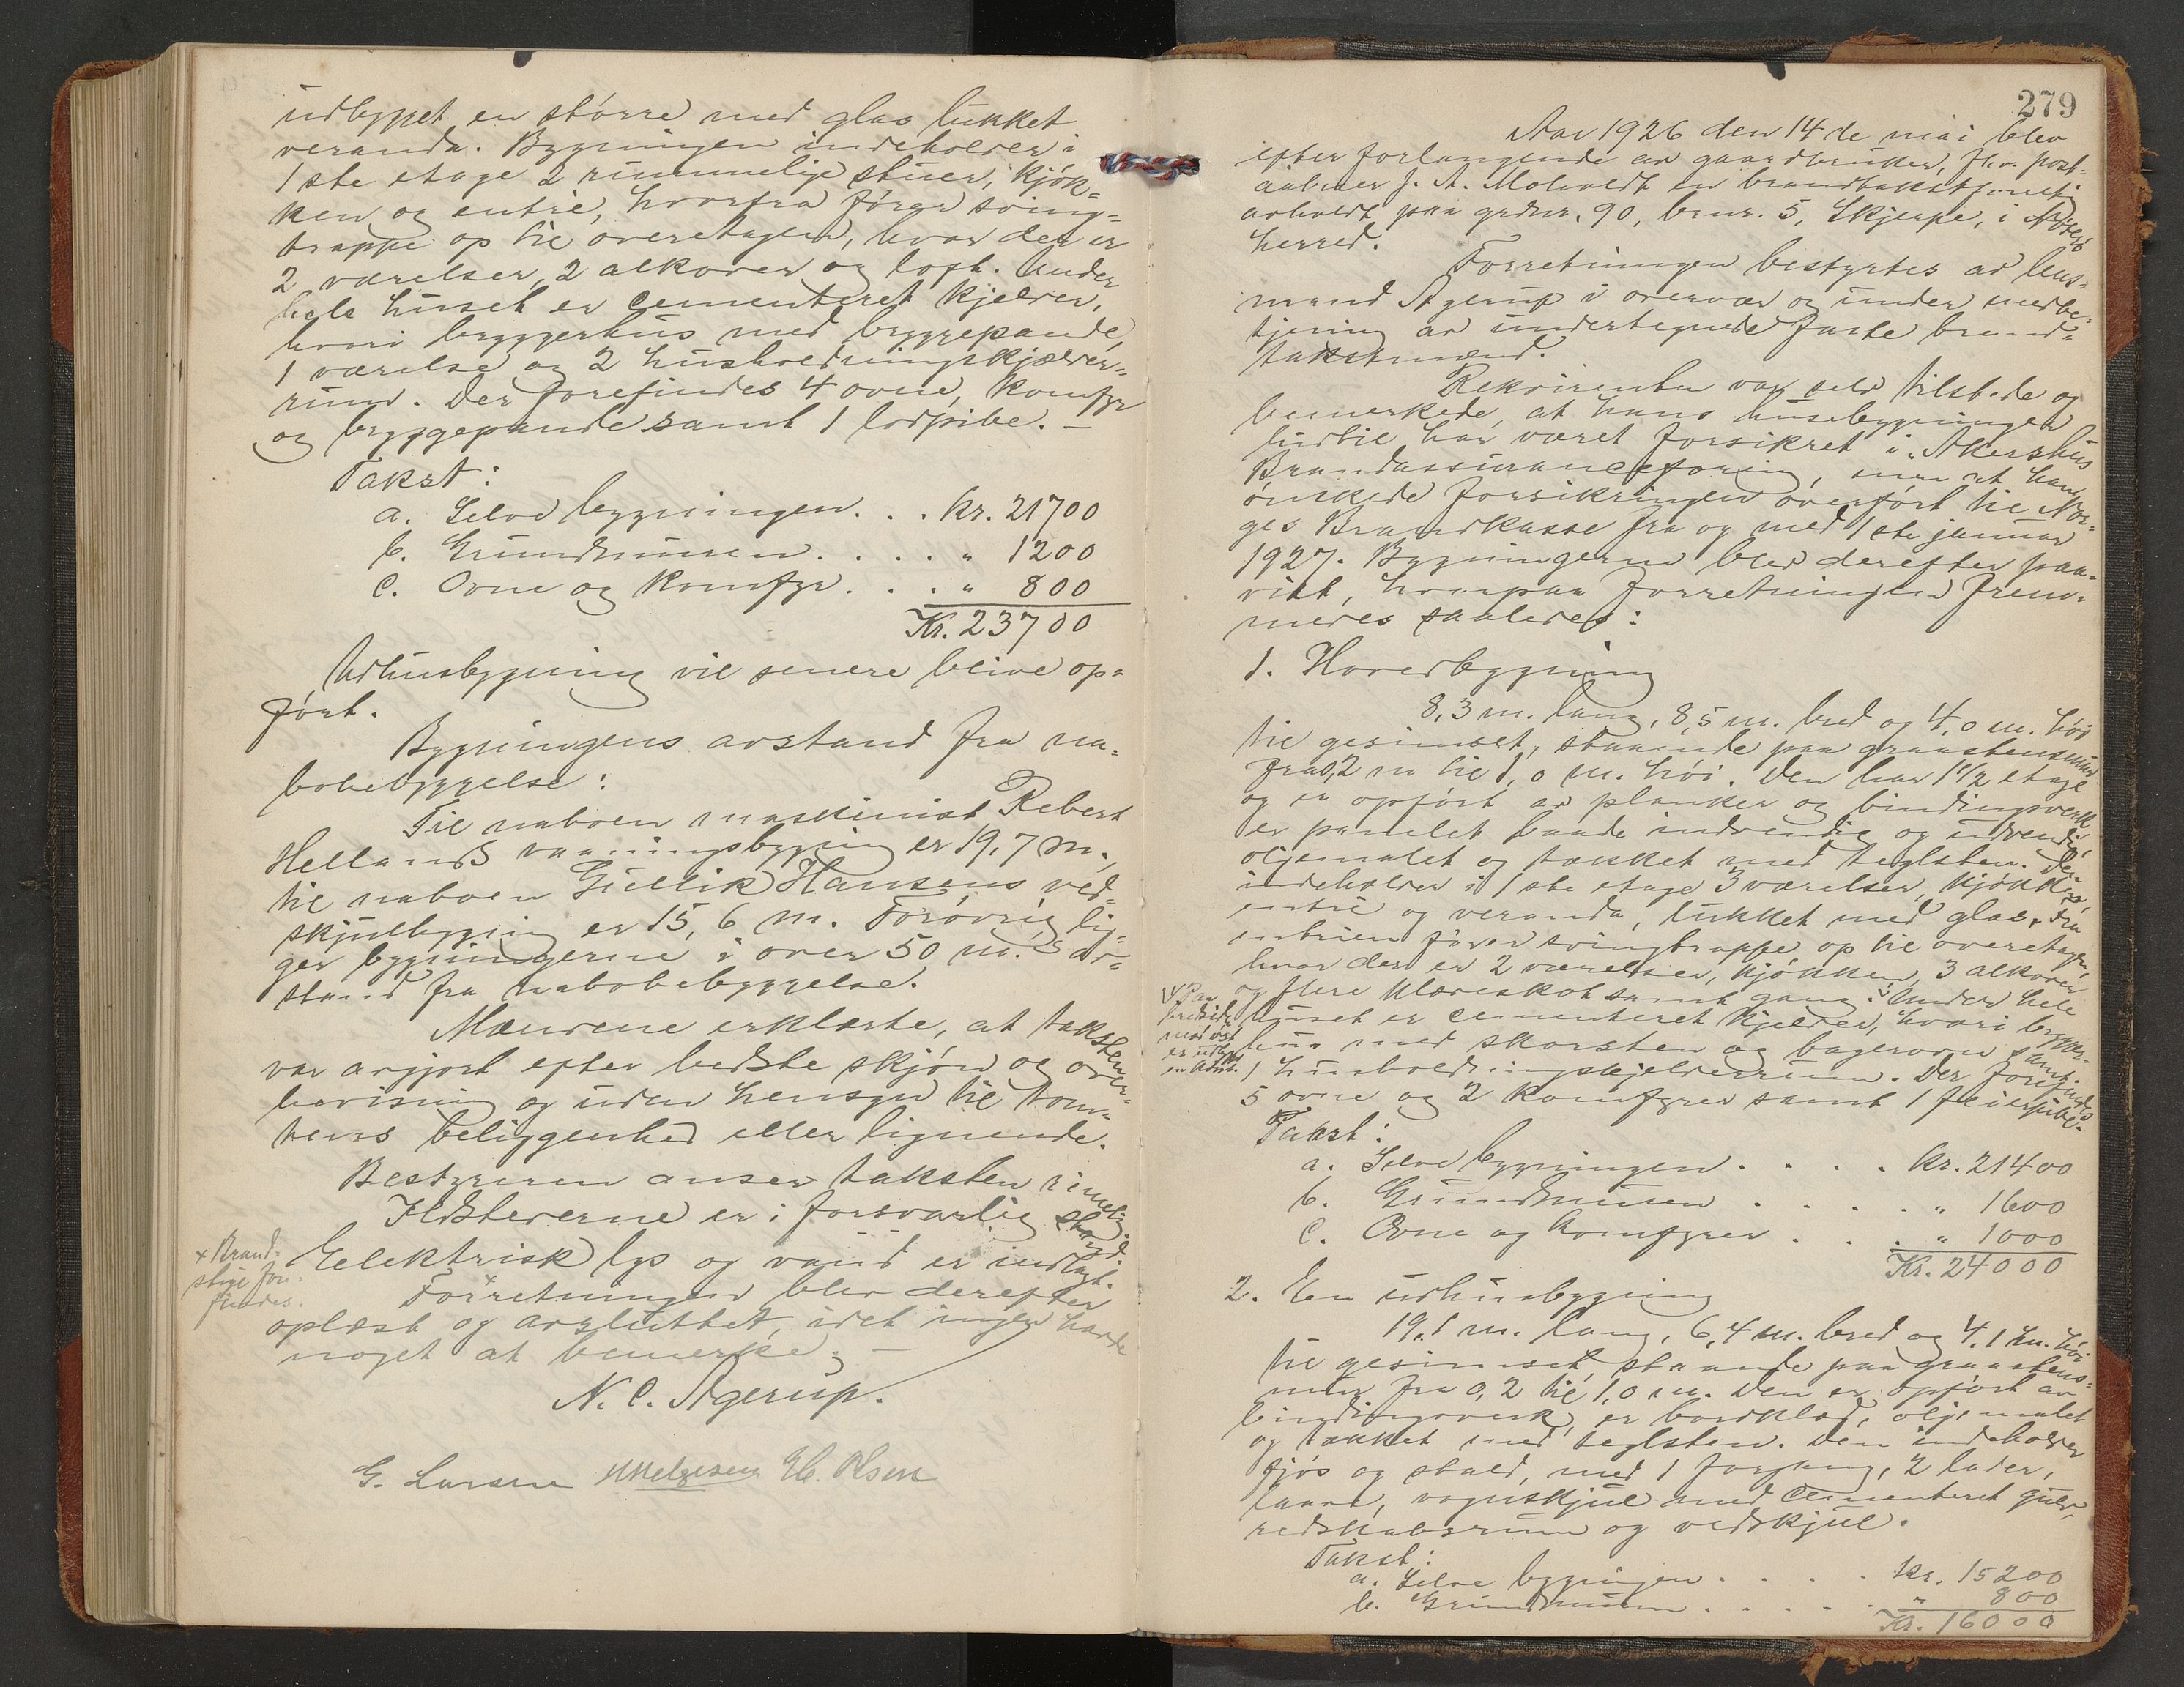 udbygget en større med glas lukket
veranda. Bygningen indeholder i
1ste etage 2 rummelige stuer, kjøk-
ken og entré, hvorfra fører sving-
trappe op til overetagen, hvor der er
2 værelser, 2 alkover og loft. Under
hele huset er cementeret kjelder,
hvori bryggerhus med bryggepande,
1 værelse og 2 husholdningskjelder-
rum. Der forefindes 4 ovne, komfyr
og bryggepande samt 1 lodpibe. –
Takst:
a. Selve bygningen . . . kr. 21700
b. Grundmuren . . . . „ 1200
c. Ovne og komfyr . . . „ 800
Kr. 23700
Udhusbygning vil senere blive op-
ført.
Bygningens avstand fra na-
bobebyggelse:
Til naboen maskinist Rebert
Hellands vaaningsbygning er 19,7 m.,
til naboen Gullik Hansens ved-
skjulbygning er 15,6 m. Forøvrig lig-
ger bygningerne i over 50 m.s av-
stand fra nabobebyggelse.
Mændene erklærte, at taksten
var avgjort efter bedste skjøn og over-
bevisning og uden hensyn til tom-
tens beliggenhed eller lignende.
Bestyreren anser taksten rimelig.
Ildstederne er i forsvarlig stand.
Elektrisk lys og vand er indlagt.
x Brand-
stige fore-
findes.
x Forretningen blev derefter
oplæst og avsluttet, idet ingen havde
noget at bemerke. –
N. C. Agerup.
G. Larsen HHelgesen H. Olsen
279
Aar 1926 den 14de mai blev
efter forlangende av gaardbruker, fhv. post-
aabner J. A. Moholdt en brandtakstforretn.
avholdt paa grdnr. 90, brnr. 5, Skjerpe, i Nøtterø
herred.
Forretningen bestyrtes av lens-
mand Agerup i overvær og under medbe-
tjening av undertegnede faste brand-
takstmænd.
Rekvirenten var selv tilstede og
bemerkede, at hans husebygninger
hidtil har været forsikret i „Akershus
Brandassuranceforening", men at han
ønskede forsikringen overført til Nor-
ges Brandkasse fra og med 1ste januar
1927. Bygningerne blev derefter paa-
vist, hvorpaa forretningen frem-
medes saaledes:
1. Hovedbygning
8,3 m. lang, 8,5 m. bred og 4,0 m. høi
til gesimset, staaende paa graastensmur
fra 0,2 m til 1,0 m. høi. Den har 1½ etage
og er opført av planker og bindingsverk,
er panelet baade indvendig og udvendig,
oljemalet og tækket med teglsten. Den
indeholder i 1ste etage 3 værelser, kjøkken,
entré og veranda, lukket med glas. Fra
entréen fører svingtrappe op til overetagen,
hvor der er 2 værelser, kjøkken, 3 alkover
og flere klæreskot samt gang. Under hele
huset er cementeret kjelder, hvori brygger-
hus med skorsten og bagerovn samt
1 husholdningskjelderrum. Der forefindes
5 ovne og 2 komfyrer samt 1 feierpibe.
Paa
bredside
mod øst
er udbygget
en
Takst:
a. Selve bygningen . . . . kr. 21400
b. Grundmuren . . . . . „ 1600
c. Ovne og komfyrer . . . „ 1000
Kr. 24000
2. En udhusbygning
19,1 m. lang, 6,4 m. bred og 4,1 m. høi
til gesimset, staaende paa graastens-
mur fra 0,2 til 1,0 m. Den er opført av
bindingsverk, er bordklæd, oljemalet
og tækket med teglsten. Den indeholder
fjøs og stald, med 1 forgang, 2 lader,
laave, vognskjul med cementeret gulv,
redskabsrum og vedskjul.
Takst:
a. Selve bygningen . . . . kr. 15200
b. Grundmuren . . . . . „ 800
Kr. 16000